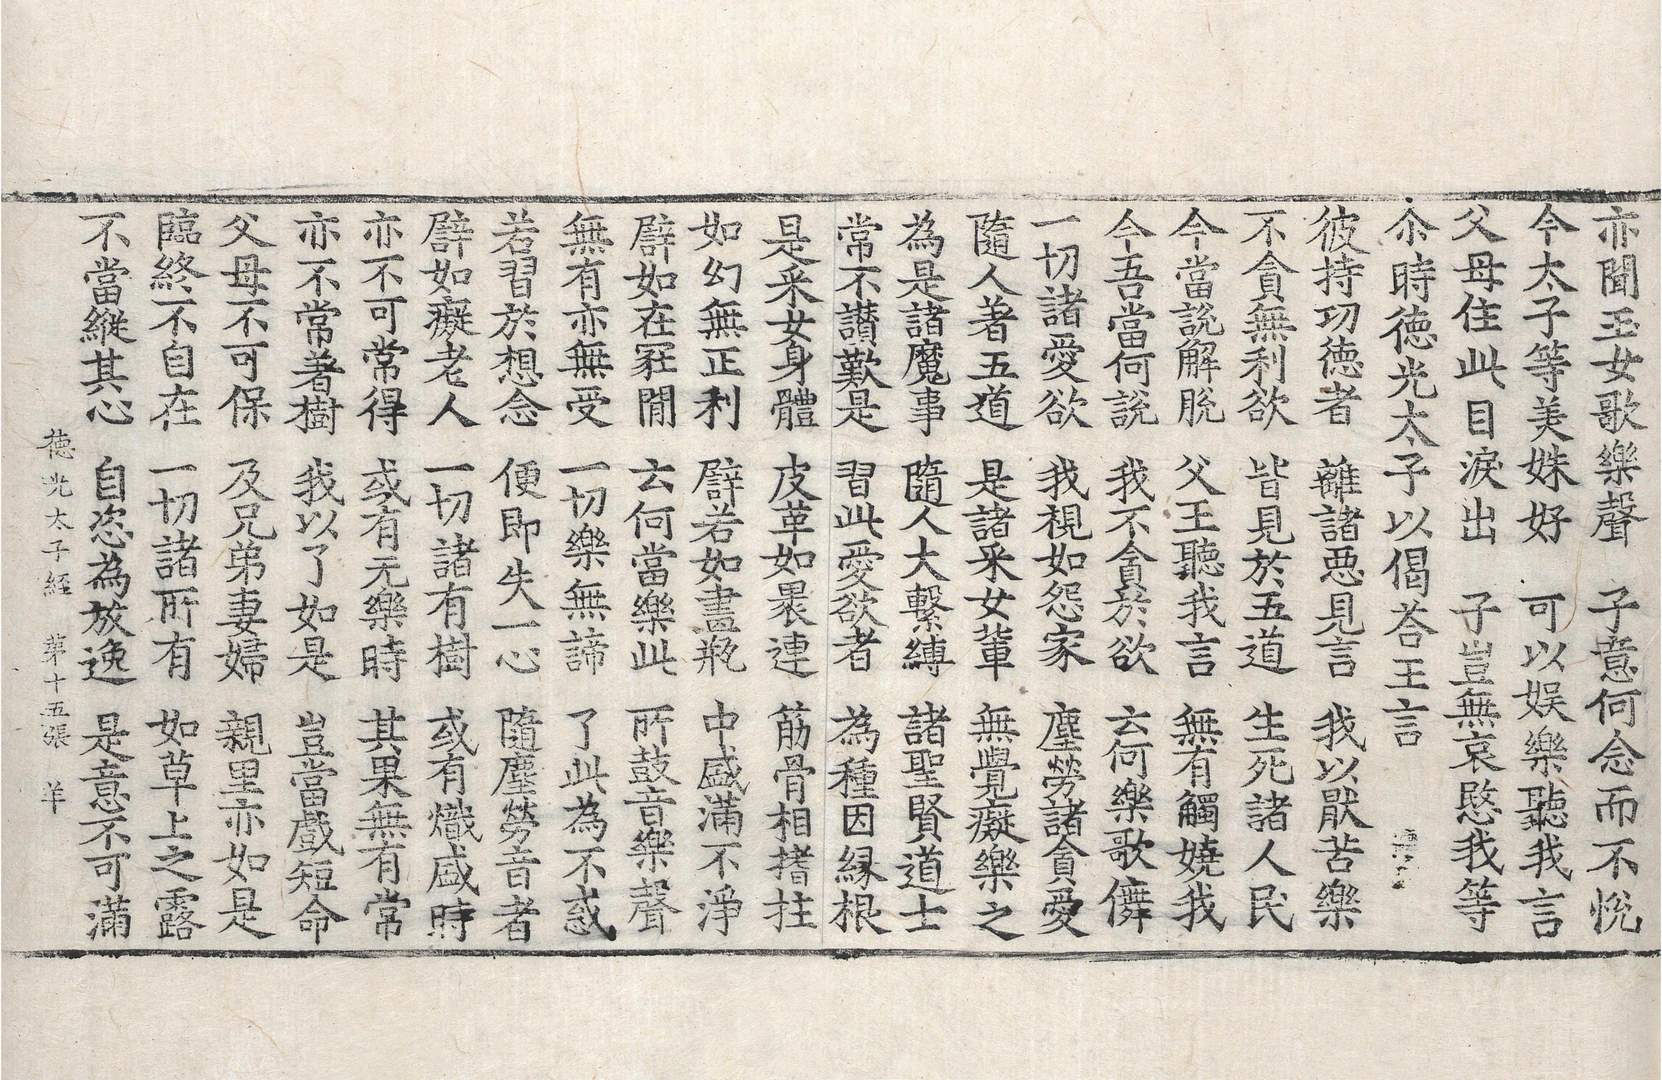 亦聞玉女歌樂聲　子意何念而不悅
今太子等美姝好　可以娛樂聽我言
父母住此目淚出　子豈無哀愍我等
尒時德光太子以偈荅王言
彼持功德者　離諸惡見言　我以厭苦樂
不貪無利欲　皆見於五道　生死諸人民
今當說解脫　父王聽我言　無有觸嬈我
今吾當何說　我不貪於欲　云何樂歌儛
一切諸愛欲　我視如怨家　塵勞諸貪愛
隨人著五道　是諸采女輩　無覺癡樂之
為是諸魔事　隨人大繫縛　諸聖賢道士
常不讃歎是　習此愛欲者　為種因緣根
是采女身體　皮革如裹連　筋骨相揩拄
如幻無正利　譬若如畫瓶　中盛滿不淨
譬如在冢間　云何當樂此　所鼓音樂聲
無有亦無受　一切樂無諦　了此為不惑
若習於想念　便即失一心　隨塵勞音者
譬如癡老人　一切諸有樹　或有熾盛時
亦不可常得　或有无樂時　其果無有常
亦不常著樹　我以了如是　豈當戲短命
父母不可保　及兄弟妻婦　親里亦如是
臨終不自在　一切諸所有　如草上之露
不當縱其心　自恣為放逸　是意不可滿
德光太子經　第十五張　羊